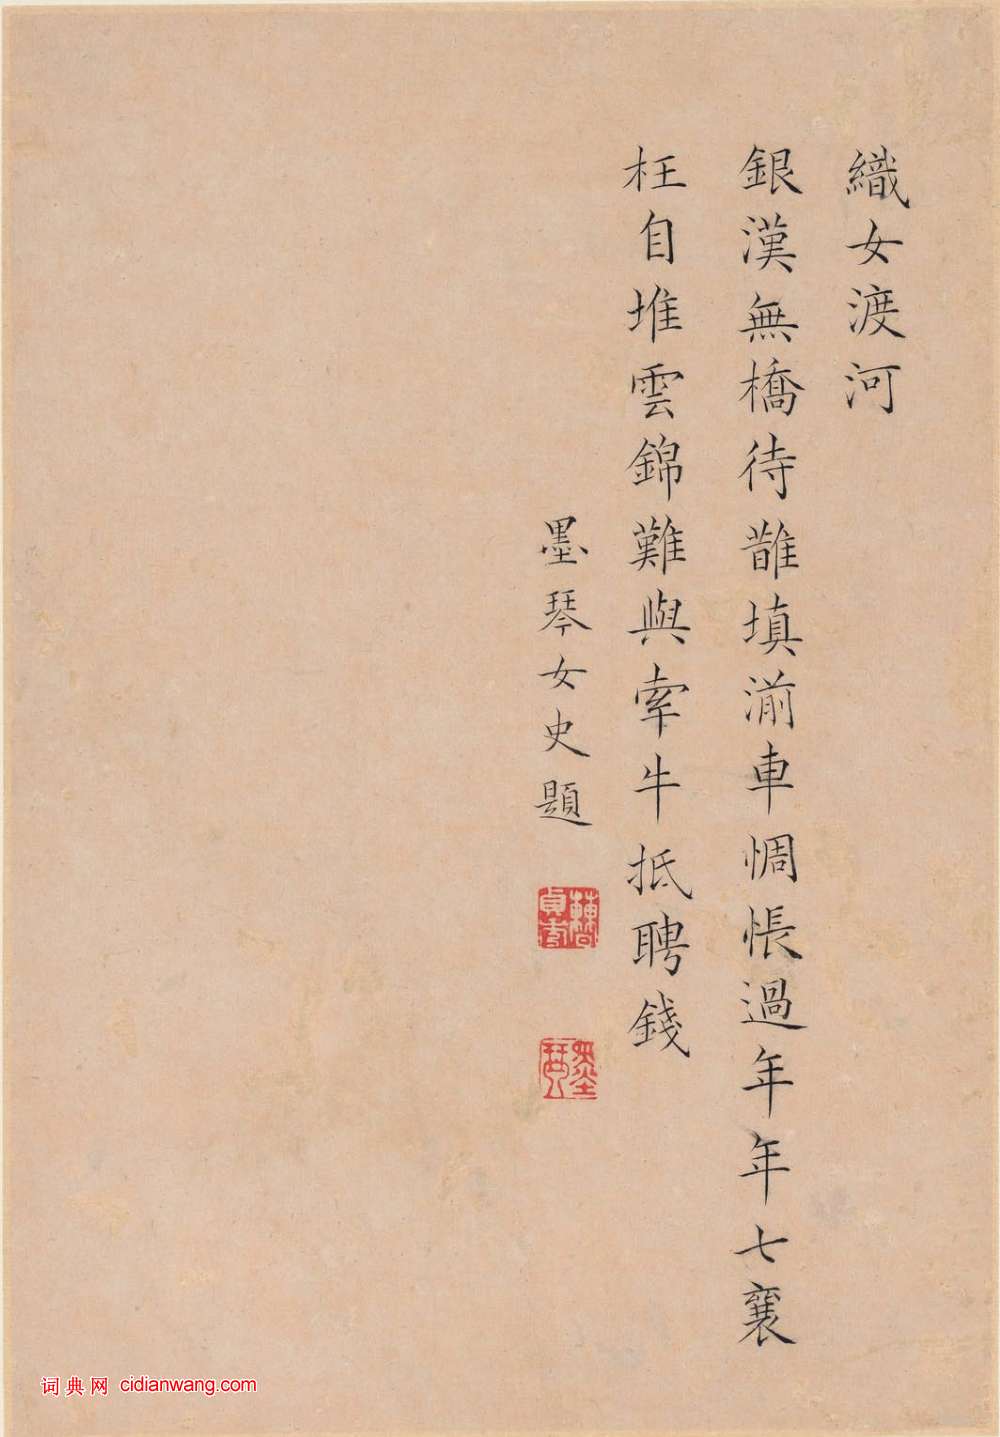 織女渡河
銀漢無橋待鵲填湔車惆悵過年年七襄
枉自堆雲錦難與牽牛抵聘錢
墨琴女史題
墨琴
词典网 cidianwang.com